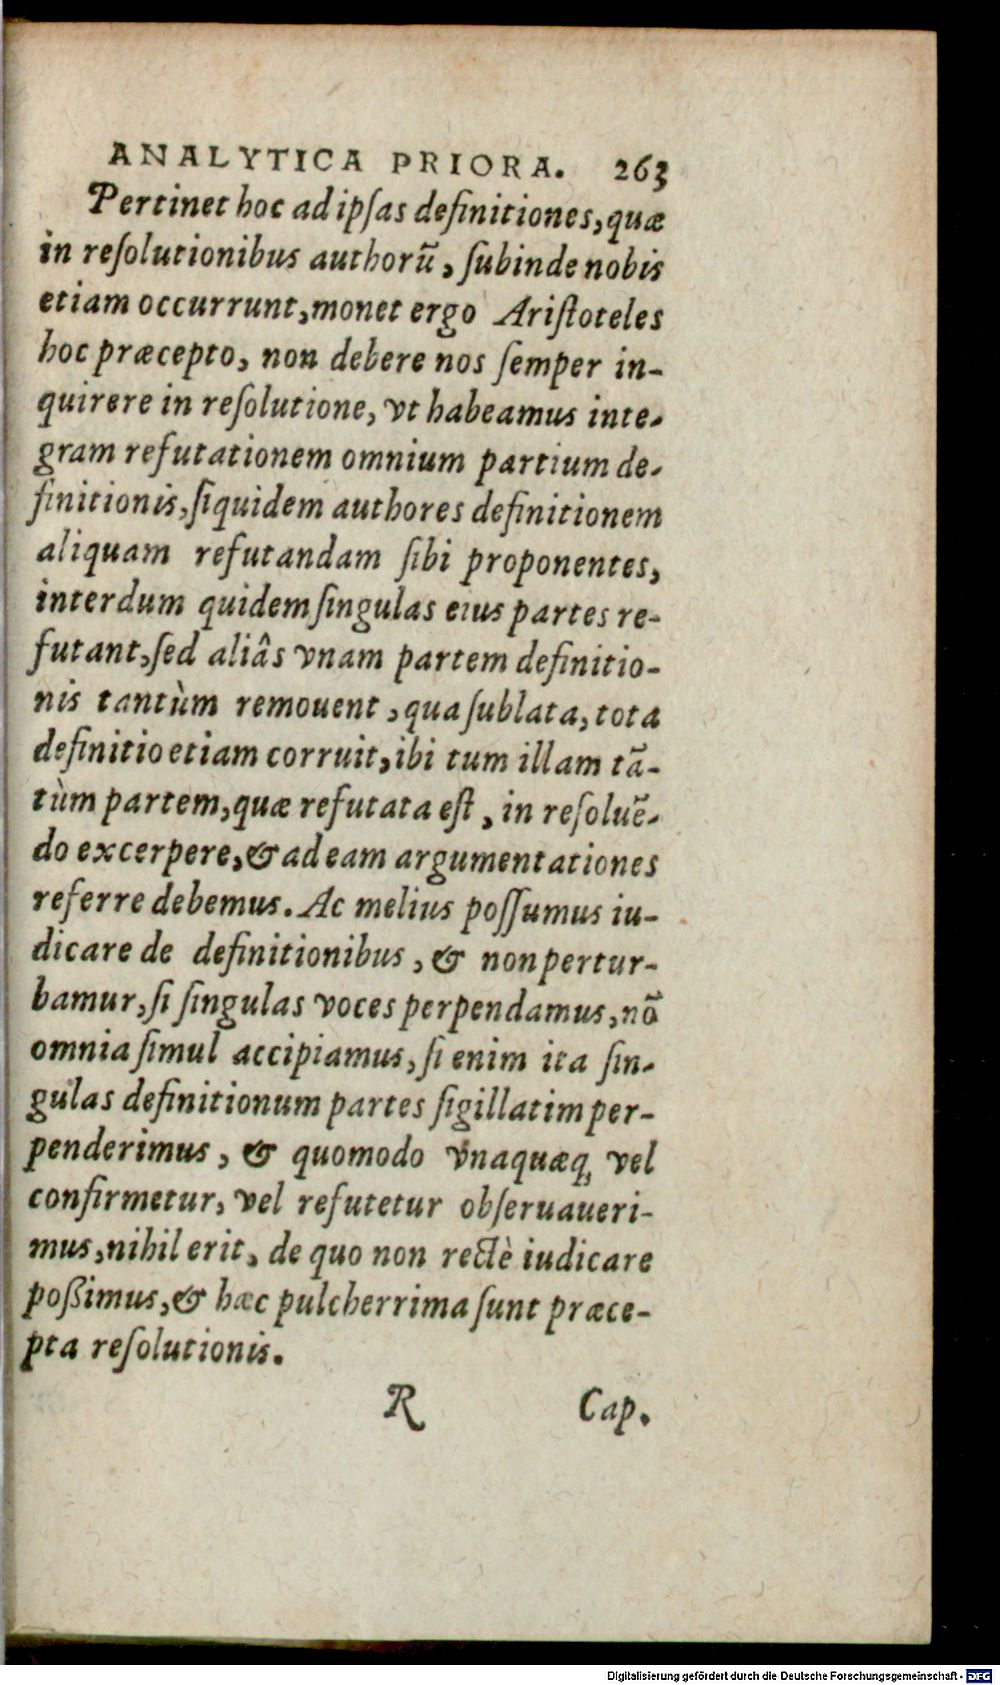 ANALYTICA PRIORA. 263
Pertinet hoc ad ipſas definitiones, quæ
in reſolutionibus authorũ, ſubinde nobis
etiam occurrunt, monet ergo Ariſtoteles
hoc præcepto, non debere nos ſemper in-
quirere in reſolutione, vt habeamus inte-
gram refutationem omnium partium de-
finitionis, ſiquidem authores definitionem
aliquam refutandam ſibi proponentes,
interdum quidem ſingulas eius partes re-
futant, ſed aliâs vnam partem definitio-
nis tantùm remouent, qua ſublata, tota
definitio etiam corruit, ibi tum illam tã-
tùm partem, quæ refutata eſt, in reſoluẽ-
do excerpere, & ad eam argumentationes
referre debemus. Ac melius poſſumus iu-
dicare de definitionibus, & non pertur-
bamur, ſi ſingulas voces perpendamus, nõ
omnia ſimul accipiamus, ſi enim ita ſin-
gulas definitionum partes ſigillatim per-
penderimus, & quomodo vnaquæq; vel
confirmetur, vel refutetur obſeruaueri-
mus, nihil erit, de quo non rectè iudicare
poßimus, & hæc pulcherrima ſunt præce-
pta reſolutionis.
R Cap.
Digitalisierung gefördert durch die Deutsche Forschungsgemeinschaft - DFG